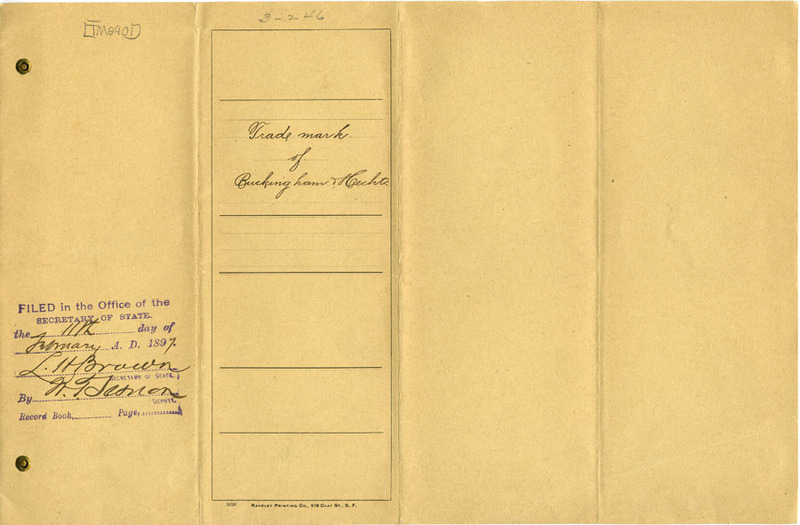 [TM890]
3-2-46
Trade mark
of
Buckingham & Hecht.
FILED in the Office of the
SECRETARY OF STATE.
the 11th day of
February A. D. 1897.
L. H. Brown
SECRETARY OF STATE.
By
DEPUTY.
Record Book, Page,
RAVELEY PRINTING CO., 518 CLAY ST., S. F.